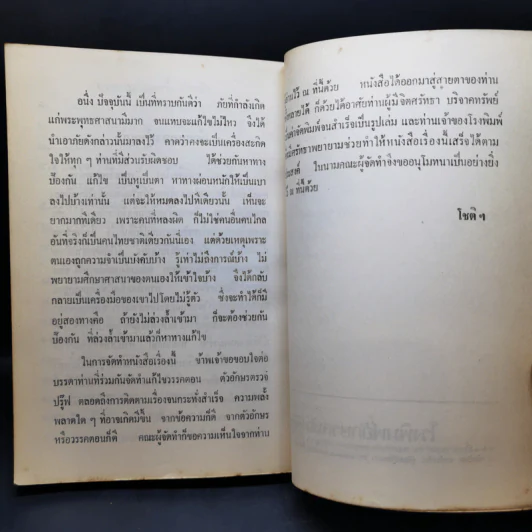 อนึ่ง ปัจจุบันนี้ เป็นที่ทราบกันดีว่า ภัยที่กำลังเกิด
แก่พระพุทธศาสนามีมาก จนแทบจะแก้ไขไม่ไหว จึงได้
นำเอาภัยดังกล่าวนั้นมาลงไว้ คาดว่าคงจะเป็นเครื่องสะกิด
ใจให้ทุก ๆ ท่านที่มีส่วนรับผิดชอบ ได้ช่วยกันหาทาง
ป้องกัน แก้ไข เป็นหูเป็นตา หาทางผ่อนหนักให้เป็นเบา
ลงไปบ้างเท่านั้น แต่จะให้หมดลงไปทีเดียวนั้น เห็นจะ
ยากมากทีเดียว เพราะคนที่หลงผิด ก็ไม่ใช่คนอื่นคนไกล
อันที่จริงก็เป็นคนไทยชาติเดียวกันนี่เอง แต่ด้วยเหตุเพราะ
ตนเองถูกความจำเป็นบังคับบ้าง รู้เท่าไม่ถึงการณ์บ้าง ไม่
พยายามศึกษาศาสนาของตนเองให้เข้าใจบ้าง จึงได้กลับ
กลายเป็นเครื่องมือของเขาไปโดยไม่รู้ตัว ซึ่งจะทำได้ก็มี
อยู่สองทางคือ ถ้ายังไม่ล่วงล้ำเข้ามา ก็จะต้องช่วยกัน
ป้องกัน ที่ล่วงล้ำเข้ามาแล้วก็หาทางแก้ไข
ในการจัดทำหนังสือเรื่องนี้ ข้าพเจ้าขอขอบใจต่อ
บรรดาท่านที่ร่วมกันจัดทำแก้ไขวรรคตอน ตัวอักษรตรวจ
ปรู๊ฟ ตลอดถึงการติดตามเรื่องจนกระทั่งสำเร็จ ความพลั้ง
พลาดใด ๆ ที่อาจเกิดมีขึ้น จากข้อความก็ดี จากตัวอักษร
หรือวรรคตอนก็ดี คณะผู้จัดทำก็ขอความเห็นใจจากท่าน
ณ ที่นี้ด้วย หนังสือได้ออกมาสู่สายตาของท่าน
ก็ด้วยได้อาศัยท่านผู้มีจิตศรัทธา บริจาคทรัพย์
จัดพิมพ์จนสำเร็จเป็นรูปเล่ม และท่านเจ้าของโรงพิมพ์
ศรัทธาพยายามช่วยทำให้หนังสือเรื่องนี้เสร็จได้ตาม
ในนามคณะผู้จัดทำจึงขออนุโมทนาเป็นอย่างยิ่ง
ณ ที่นี้ด้วย
โชติ ฯ